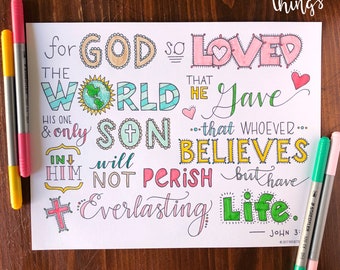 things
for GOD so LOVED
THE WORLD THAT HE Gave
HIS ONE & only SON that WHOEVER
IN HIM BELIEVES
will NOT PERISH but have
Everlasting Life.
JOHN 3: